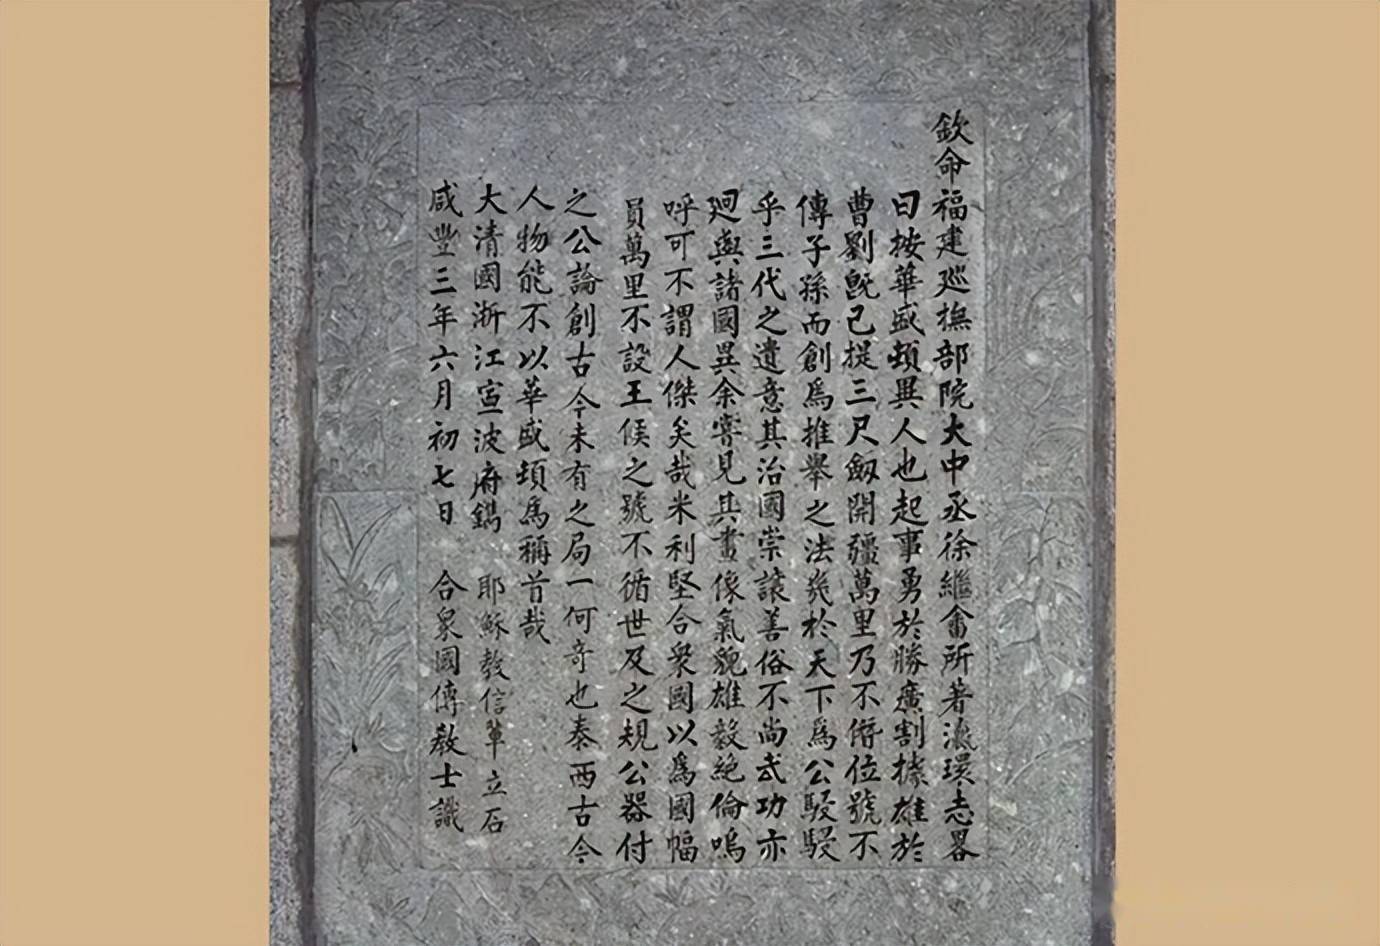 欽命福建巡撫部院大中丞徐繼畬所著瀛環志畧
曰按華盛頓異人也起事勇於勝廣割據雄於
曹劉旣已提三尺劔開疆萬里乃不僭位號不
傳子孫而創爲推舉之法幾於天下爲公駸駸
乎三代之遺意其治國崇讓善俗不尚武功亦
迥與諸國異余嘗見其畫像氣貌雄毅絶倫嗚
呼可不謂人傑矣哉米利堅合衆國以爲國幅
員萬里不設王侯之號不循世及之規公器付
之公論創古今未有之局一何奇也泰西古今
人物能不以華盛頓爲稱首哉
大清國浙江寧波府鐫 耶穌教信輩立石
咸豐三年六月初七日 合衆國傳教士識